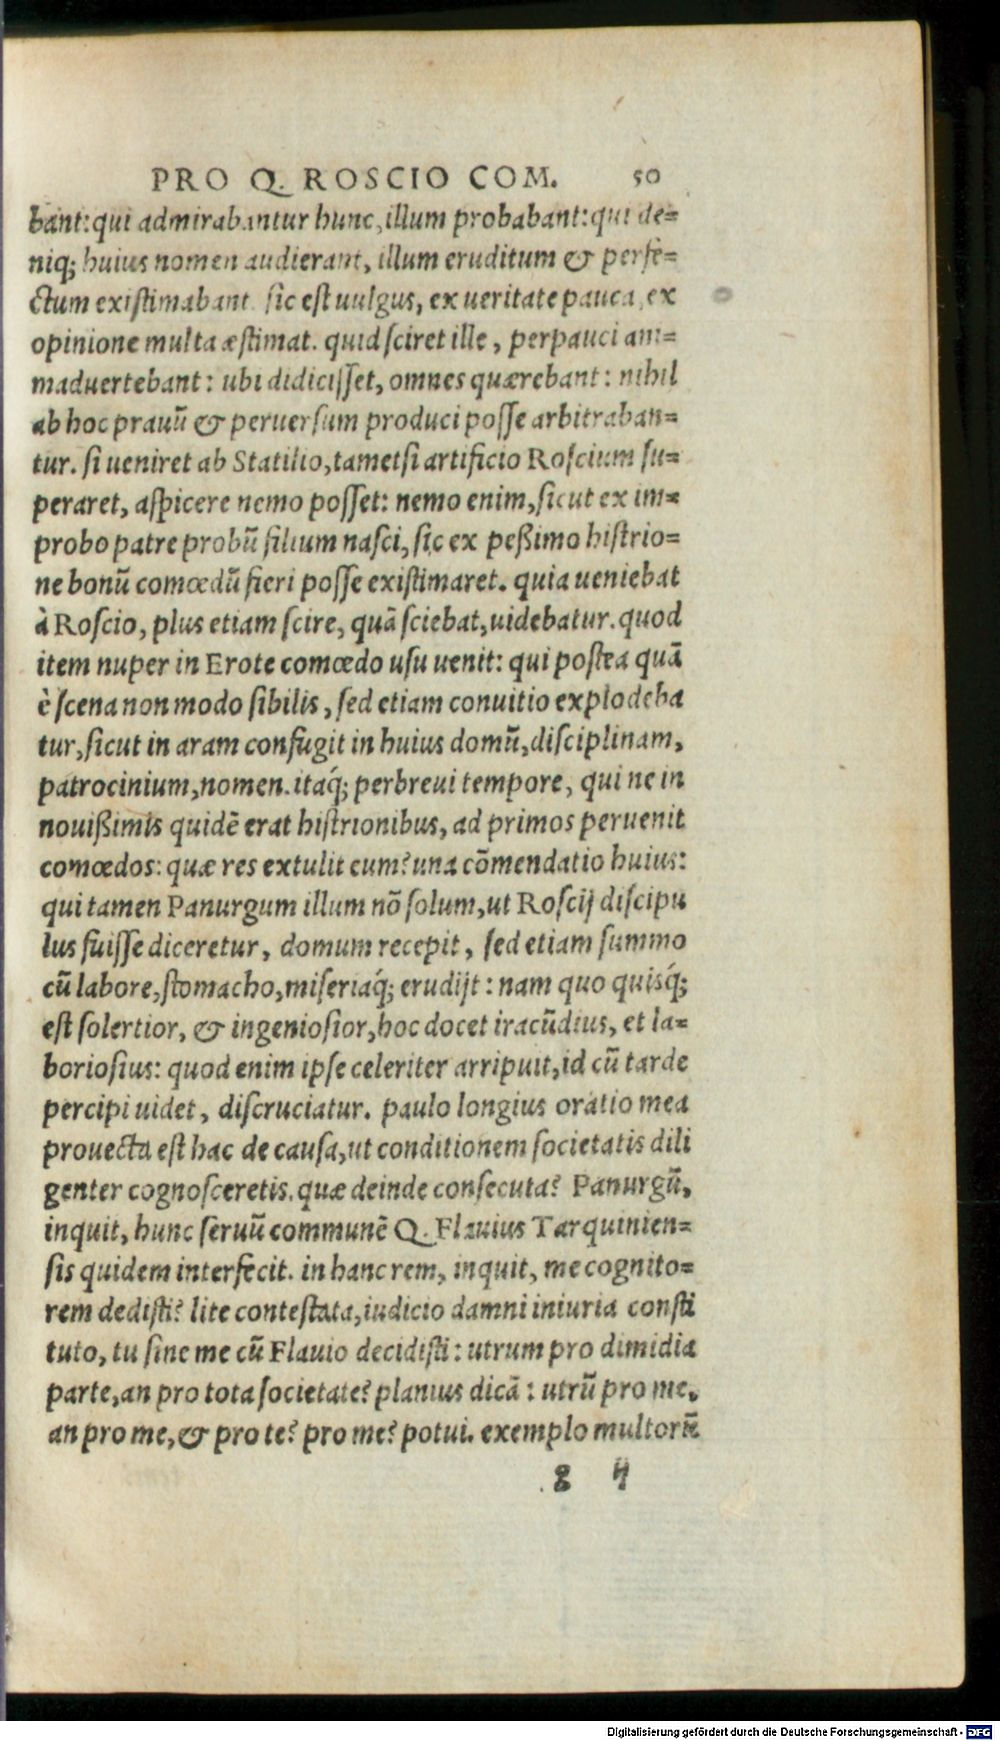 PRO Q. ROSCIO COM. 50
bant: qui admirabantur hunc, illum probabant: qui de=
niq; huius nomen audierant, illum eruditum & perfe=
ctum existimabant. sic est uulgus, ex ueritate pauca, ex
opinione multa æstimat. quid sciret ille, perpauci ani=
maduertebant: ubi didicisset, omnes quærebant: nihil
ab hoc prauū & peruersum produci posse arbitraban=
tur. si ueniret ab Statilio, tametsi artificio Roscium su=
peraret, aspicere nemo posset: nemo enim, sicut ex im=
probo patre probū filium nasci, sic ex peßimo histrio=
ne bonū comœdū fieri posse existimaret. quia ueniebat
à Roscio, plus etiam scire, quā sciebat, uidebatur. quod
item nuper in Erote comœdo usu uenit: qui postea quā
è scena non modo sibilis, sed etiam conuitio explodeba
tur, sicut in aram confugit in huius domū, disciplinam,
patrocinium, nomen. itaq́; perbreui tempore, qui ne in
nouißimis quidē erat histrionibus, ad primos peruenit
comœdos: quæ res extulit eum? una cōmendatio huius:
qui tamen Panurgum illum nō solum, ut Roscij discipu
lus fuisse diceretur, domum recepit, sed etiam summo
cū labore, stomacho, miseriaq́; erudijt: nam quo quisq́;
est solertior, & ingeniosior, hoc docet iracūdius, et la=
boriosius: quod enim ipse celeriter arripuit, id cū tarde
percipi uidet, discruciatur. paulo longius oratio mea
prouecta est hac de causa, ut conditionem societatis dili
genter cognosceretis. quæ deinde consecuta? Panurgū,
inquit, hunc seruū communē Q. Flauius Tarquinien=
sis quidem interfecit. in hanc rem, inquit, me cognito=
rem dedisti? lite contestata, iudicio damni iniuria consti
tuto, tu sine me cū Flauio decidisti: utrum pro dimidia
parte, an pro tota societate? planius dicā: utrū pro me,
an pro me, & pro te? pro me? potui. exemplo multorū
g 4
Digitalisierung gefördert durch die Deutsche Forschungsgemeinschaft - DFG